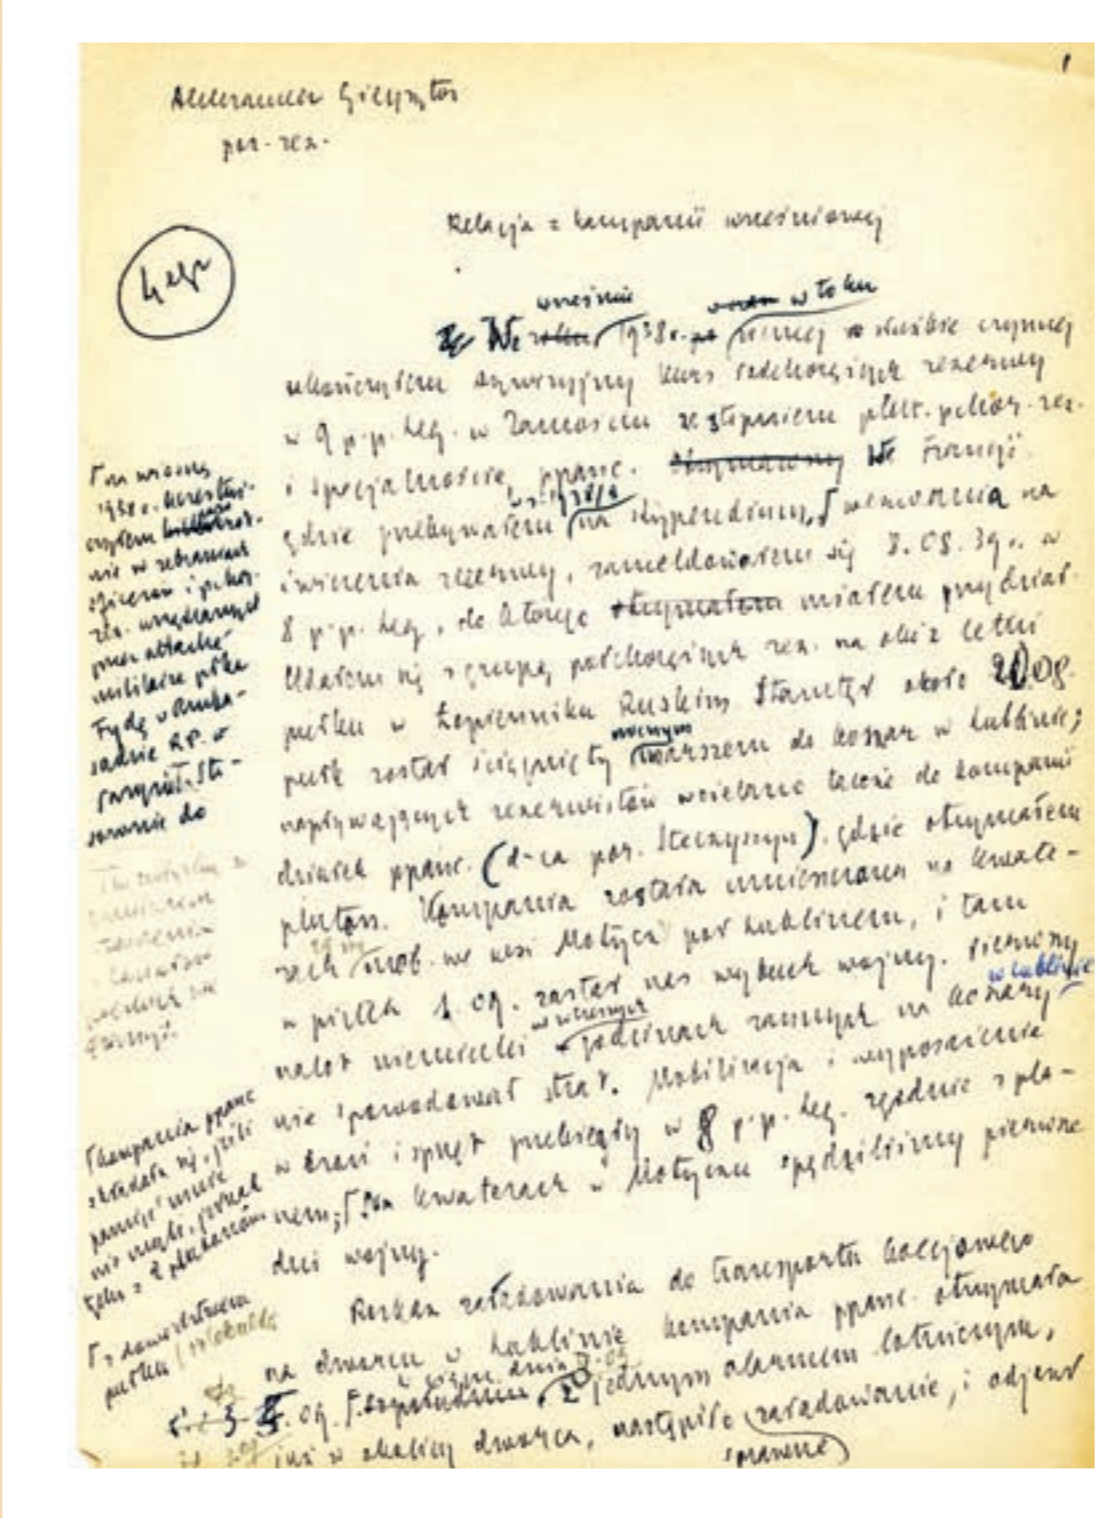 1
Aleksander Gieysztor
por. rez.
Relacja z kampanii wrześniowej
wrześniu w toku
We roku 1938 r. po wemcj w służbie czynnej
ukończyłem dywizyjny kurs podchorążych rezerwy
w 9 p.p. Leg. w Zamościu ze stopniem plut. pchor. rez.
i specjalnością ppanc. Otrzymawszy We Francji
w r. 1938/9
gdzie przebywałem na stypendium, wezwania na
ćwiczenia rezerwy, zameldowałem się 3.08.39 r. w
8 p.p. Leg., do którego otrzymałem miałem przydział.
Udałem się z grupą podchorążych rez. na obóz letni
pułku w Łopienniku Ruskim. Stamtąd około 20.08.
nocnym
pułk został ściągnięty marszem do koszar w Lublinie;
napływających rezerwistów wcielano także do kompanii
działek ppanc. (d-ca por. Steczyszyn), gdzie otrzymałem
pluton. Kompania została umieszczona na kwate-
rach mob. we wsi Motycz pod Lublinem, i tam
w piątek 1.09. zastał nas wybuch wojny. Pierwszy
w Lublinie
w wczesnych
nalot niemiecki godzinach rannych na koszary
nie spowodował strat. Mobilizacja i wyposażenie
w broń i sprzęt przebiegły w 8 p.p. Leg. zgodnie z pla-
nem; Na kwaterach w Motyczu spędziliśmy pierwsze
dni wojny.
Rozkaz załadowania do transportu kolejowego
na dworcu w Lublinie kompania ppanc. otrzymała
w ciągu dnia
.09. popołudniu. Z jednym alarmem lotniczym,
już w okolicy dworca, nastąpiło załadowanie, i odjazd
sprawne
na wiosnę
1938 r. uczestni-
czyłem
nie w zebraniach
oficerów i pchor.
rez. urządzanych
przez attaché
militaire płka
Fydę w Amba-
sadzie R.P. w
Paryżu.
do
Kompania ppanc
składała się, jeśli
pamięć mnie
nie myli, jednak
tylko z 2 plutonów.
z dowództwa
pułku